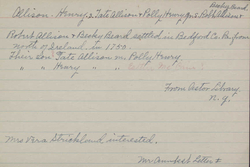 Allison - Henry, & Tate Allison & Polly Henry, & Rob Allison & Becky Beard
Robert Allison & Becky Beard settled in Bedford Co. Pa from
North of Ireland in 1750
Their Son Tate Allison m Polly Henry
" " Henry "
From Astor Library
N.Y.
Mrs Strickland interested.
Letter